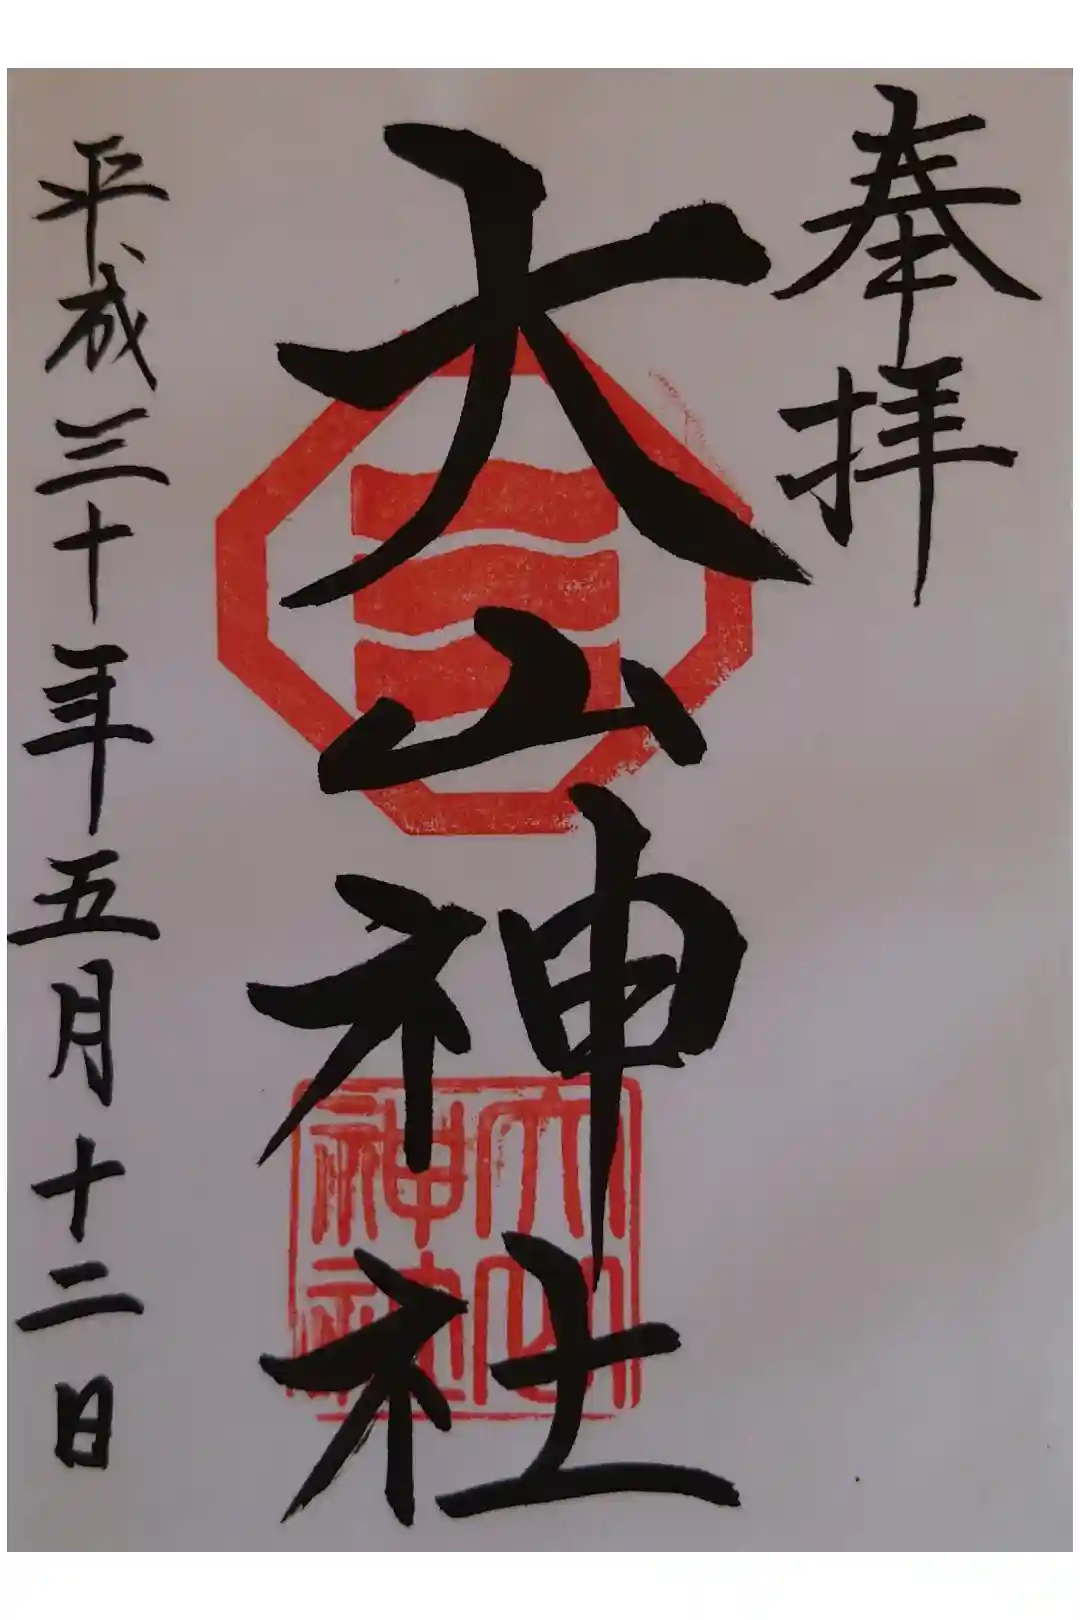 奉拝
大山神社
大山神社
平成三十年五月十二日